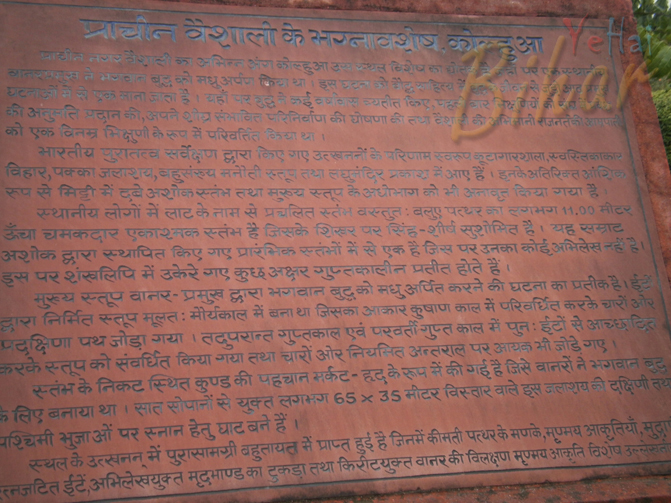 प्राचीन वैशाली के भग्नावशेष, कोल्हुआ
YeHai
Bihar
प्राचीन नगर वैशाली का अभिन्न अंग कोल्हुआ उस स्थल विशेष का
वानरप्रमुख ने भगवान बुद्ध को मधु अर्पण किया था । इस
घटनाओं में से एक माना जाता है । यहाँ पर बुद्ध ने कई वर्षावास व्यतीत किए,
की अनुमति प्रदान की, अपने शीघ्र संभावित परिनिर्वाण की घोषणा की तथा वैशाली की
को एक विनम्र भिक्षुणी के रूप में परिवर्तित किया था ।
भारतीय पुरातत्व सर्वेक्षण द्वारा किए गए उत्खननों के परिणाम स्वरूप कूटागारशाला, स्वस्तिकाकार
विहार, पक्का जलाशय, बहुसंख्य मनौती स्तूप तथा लघुमंदिर प्रकाश में आए हैं । इनके अतिरिक्त आंशिक
रूप से मिट्टी में दबे अशोक स्तंभ तथा मुख्य स्तूप के अधोभाग को भी अनावृत किया गया है ।
स्थानीय लोगों में लाट के नाम से प्रचलित स्तंभ वस्तुतः बलुए पत्थर का लगभग 11.00 मीटर
ऊँचा चमकदार एकाश्मक स्तंभ है जिसके शिखर पर सिंह-शीर्ष सुशोभित है । यह सम्राट
अशोक द्वारा स्थापित किए गए प्रारंभिक स्तंभों में से एक है जिस पर उनका कोई अभिलेख नहीं है ।
इस पर शंखलिपि में उकेरे गए कुछ अक्षर गुप्तकालीन प्रतीत होते हैं ।
मुख्य स्तूप वानर-प्रमुख द्वारा भगवान बुद्ध को मधु अर्पित करने की घटना का प्रतीक है । ईंटों
द्वारा निर्मित स्तूप मूलतः मौर्यकाल में बना था जिसका आकार कुषाण काल में परिवर्धित करके चारों ओर
पदक्षिणा पथ जोड़ा गया । तदुपरान्त गुप्तकाल एवं परवर्ती गुप्त काल में पुनः ईंटों से आच्छादित
करके स्तूप को संवर्धित किया गया तथा चारों ओर नियमित अन्तराल पर आयक भी जोड़े गए ।
स्तंभ के निकट स्थित कुण्ड की पहचान मर्कट-हृद के रूप में की गई है जिसे वानरों ने भगवान बुद्ध
के लिए बनाया था । सात सोपानों से युक्त लगभग 65 x 35 मीटर विस्तार वाले इस जलाशय की दक्षिणी तथा
पश्चिमी भुजाओं पर स्नान हेतु घाट बने हैं ।
स्थल के उत्खनन में पुरासामग्री बहुतायत में प्राप्त हुई है जिनमें कीमती पत्थर के मनके, मृण्मय आकृतियाँ, मुद्राएं
ईंटें, अभिलेखयुक्त मृद्भाण्ड का टुकड़ा तथा किरीटयुक्त वानर की विलक्षण मृण्मय आकृति विशेष